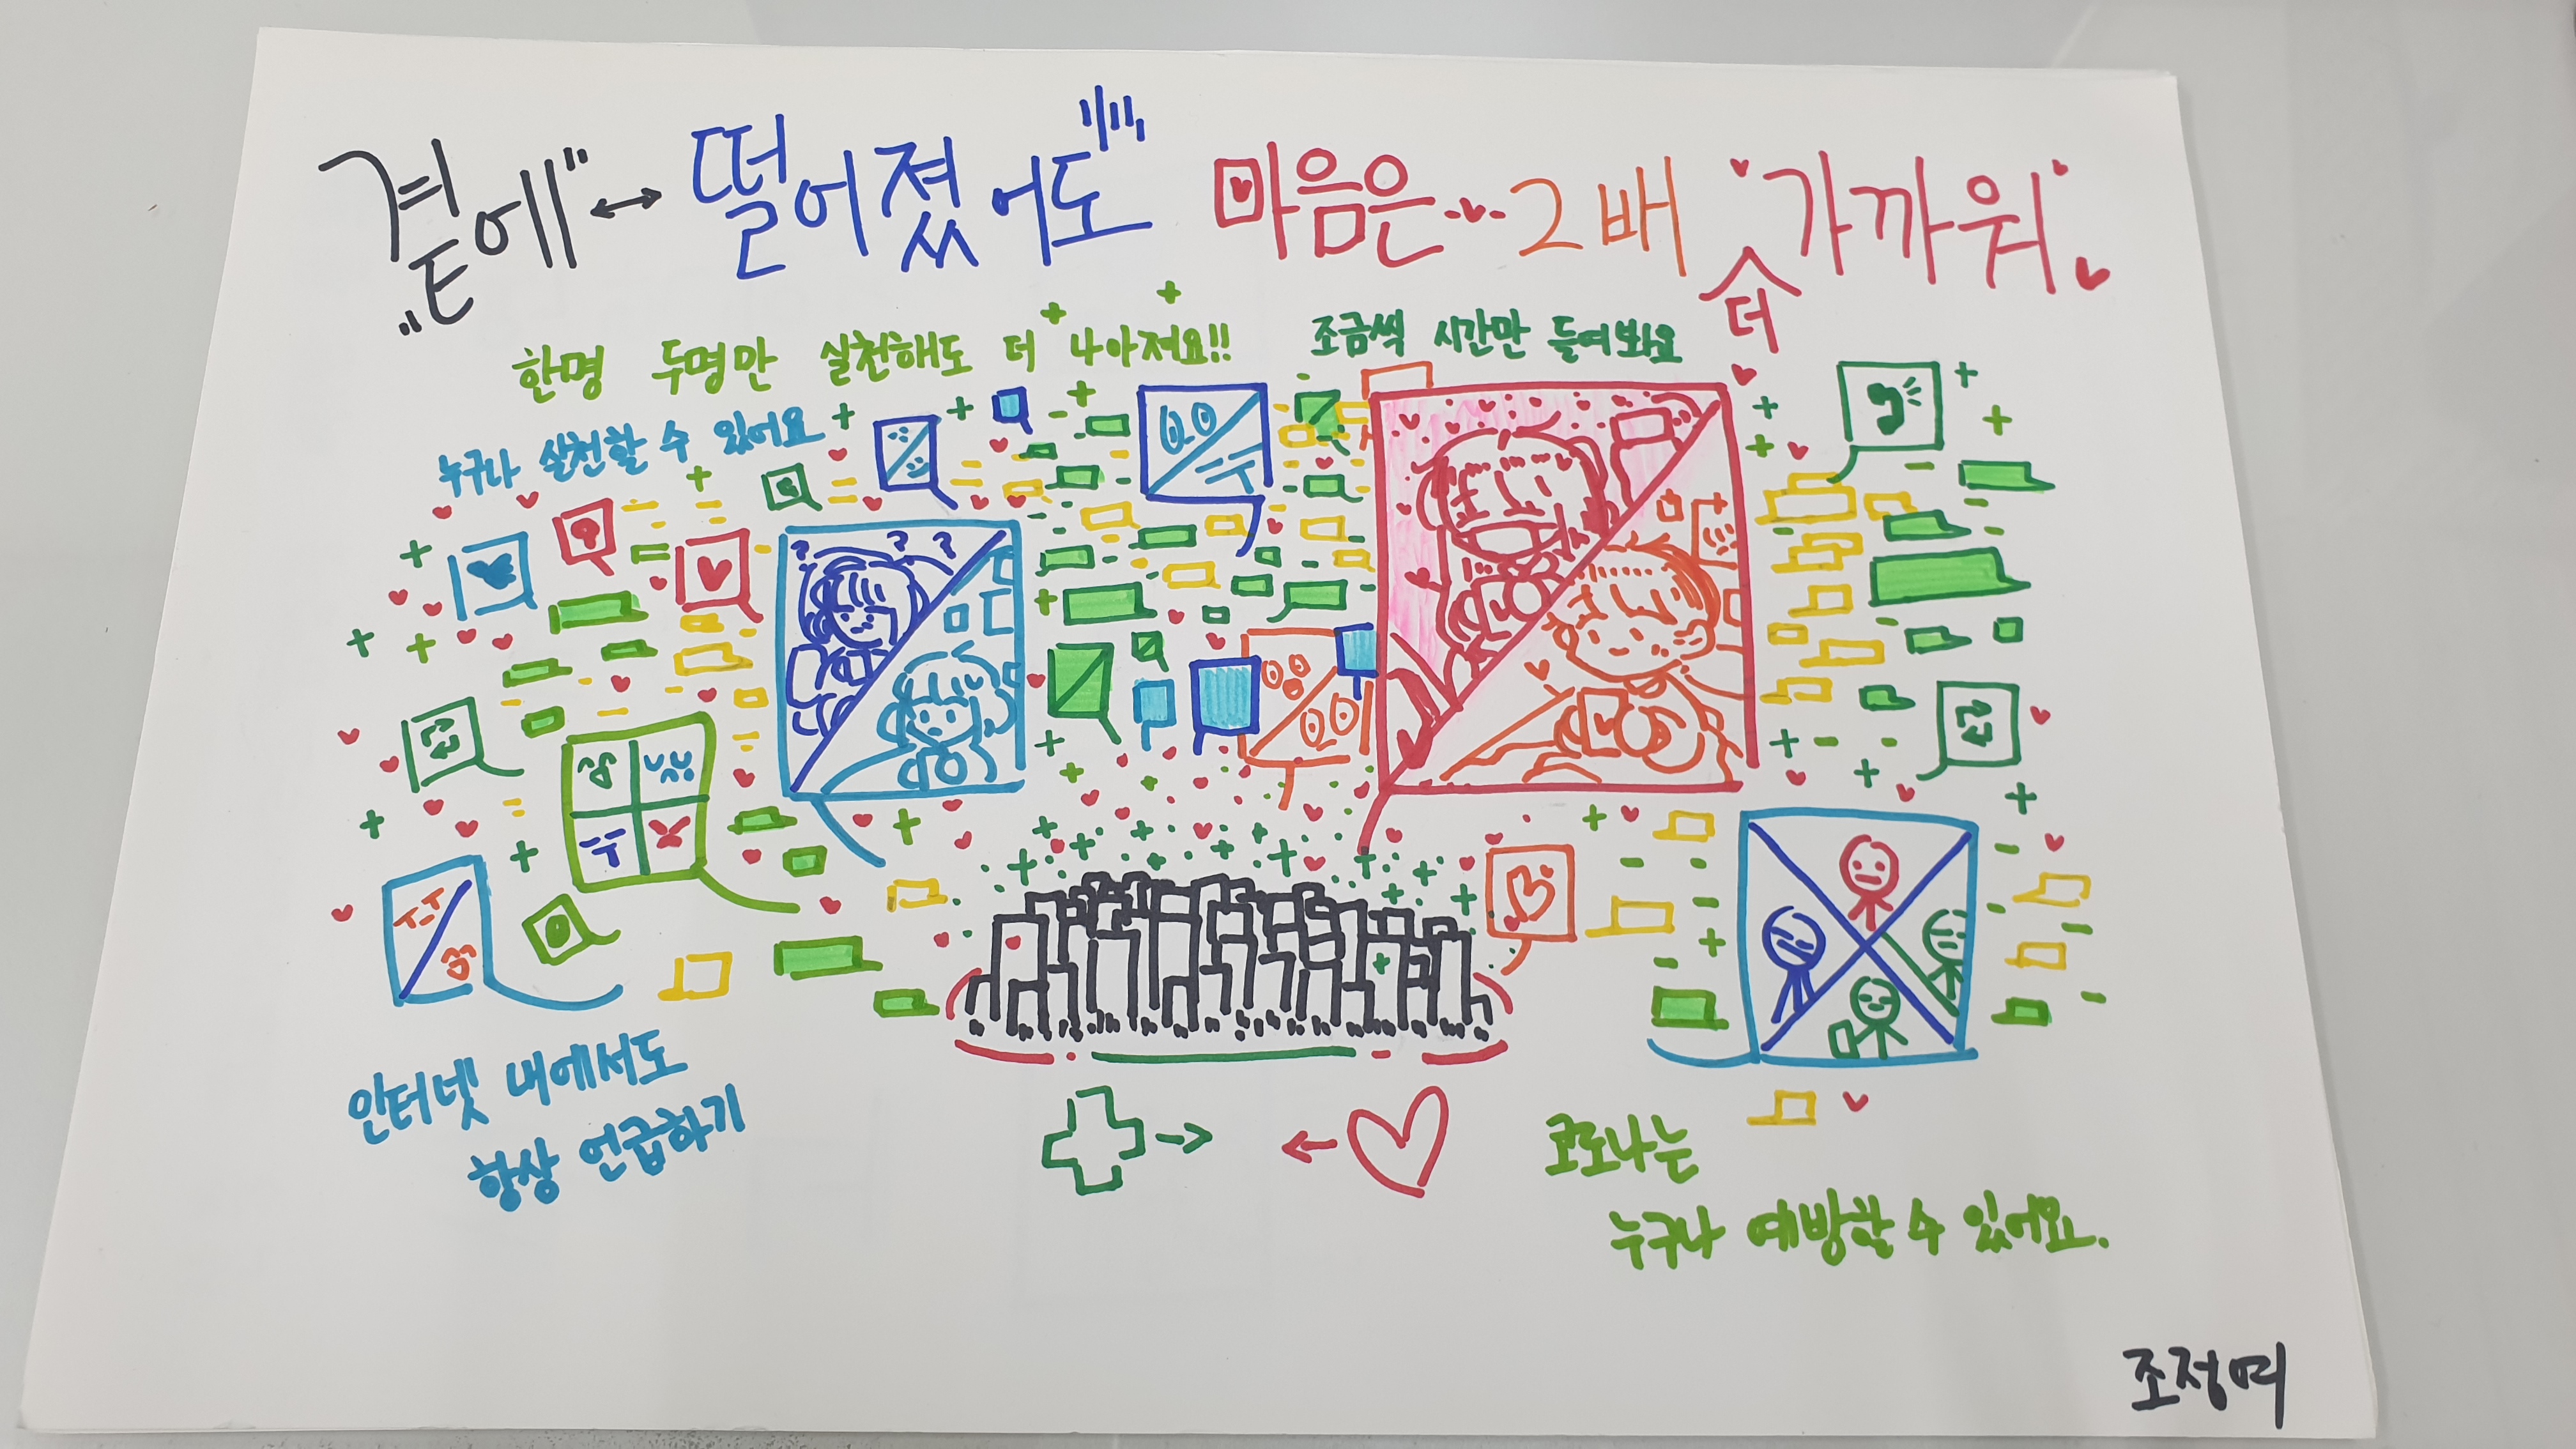 곁에 떨어졌어도 마음은 2배 더 가까워
한명 두명만 실천해도 더 나아저요!!
조금씩 시간만 들여봐요
누구나 실천할 수 있어요
인터넷 내에서도
항상 언급하기
코로나는
누구나 예방할 수 있어요.